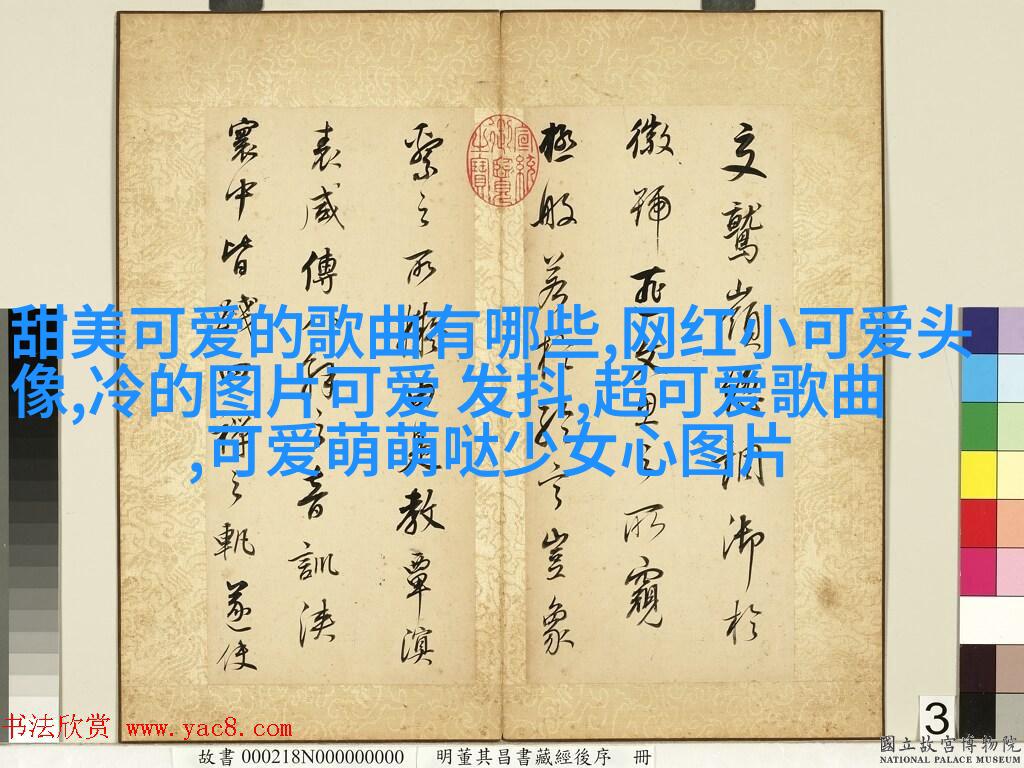 甜美可爱的歌曲有哪些,网红小可爱头
像,冷的图片可爱 发抖,超可爱歌曲
,可爱萌萌哒少女心图片
文鷲嶺調御於
徽號匪文思之所窺
極般若於言豈象
繫之所擬由是教覃溟
表咸傳之音訓浹
寰中皆踐四禪之軌遂使
书法欣赏 www.yac8.com
故書 000218N000000000 明董其昌書藏經後序 冊
3
國立故宮博物院
NATIONAL PALACE MUSEUM